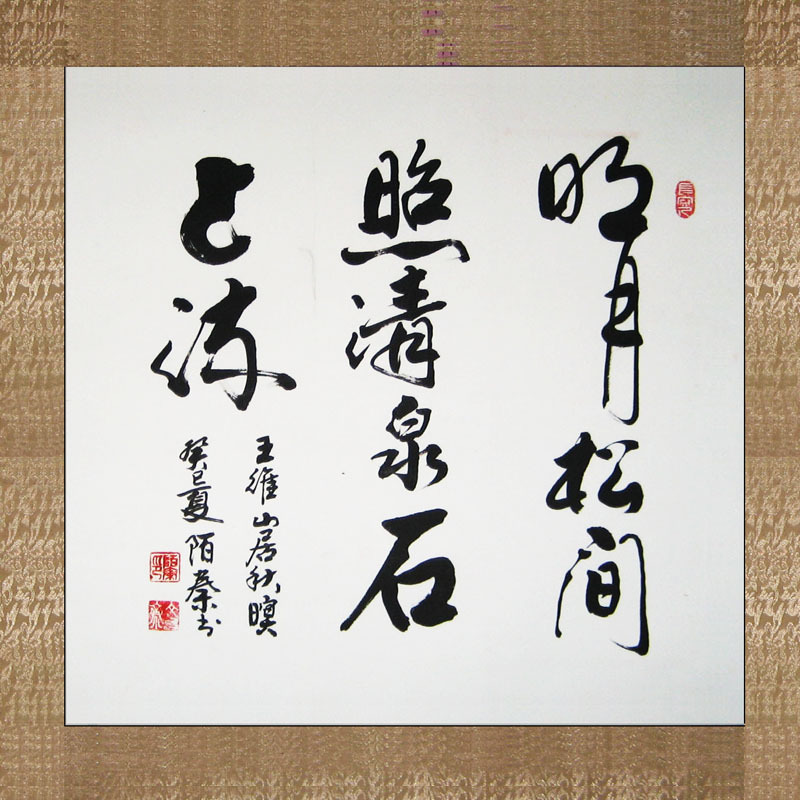 明月松间
照清泉石
上流
王维山居秋暝
癸巳夏陌桑书